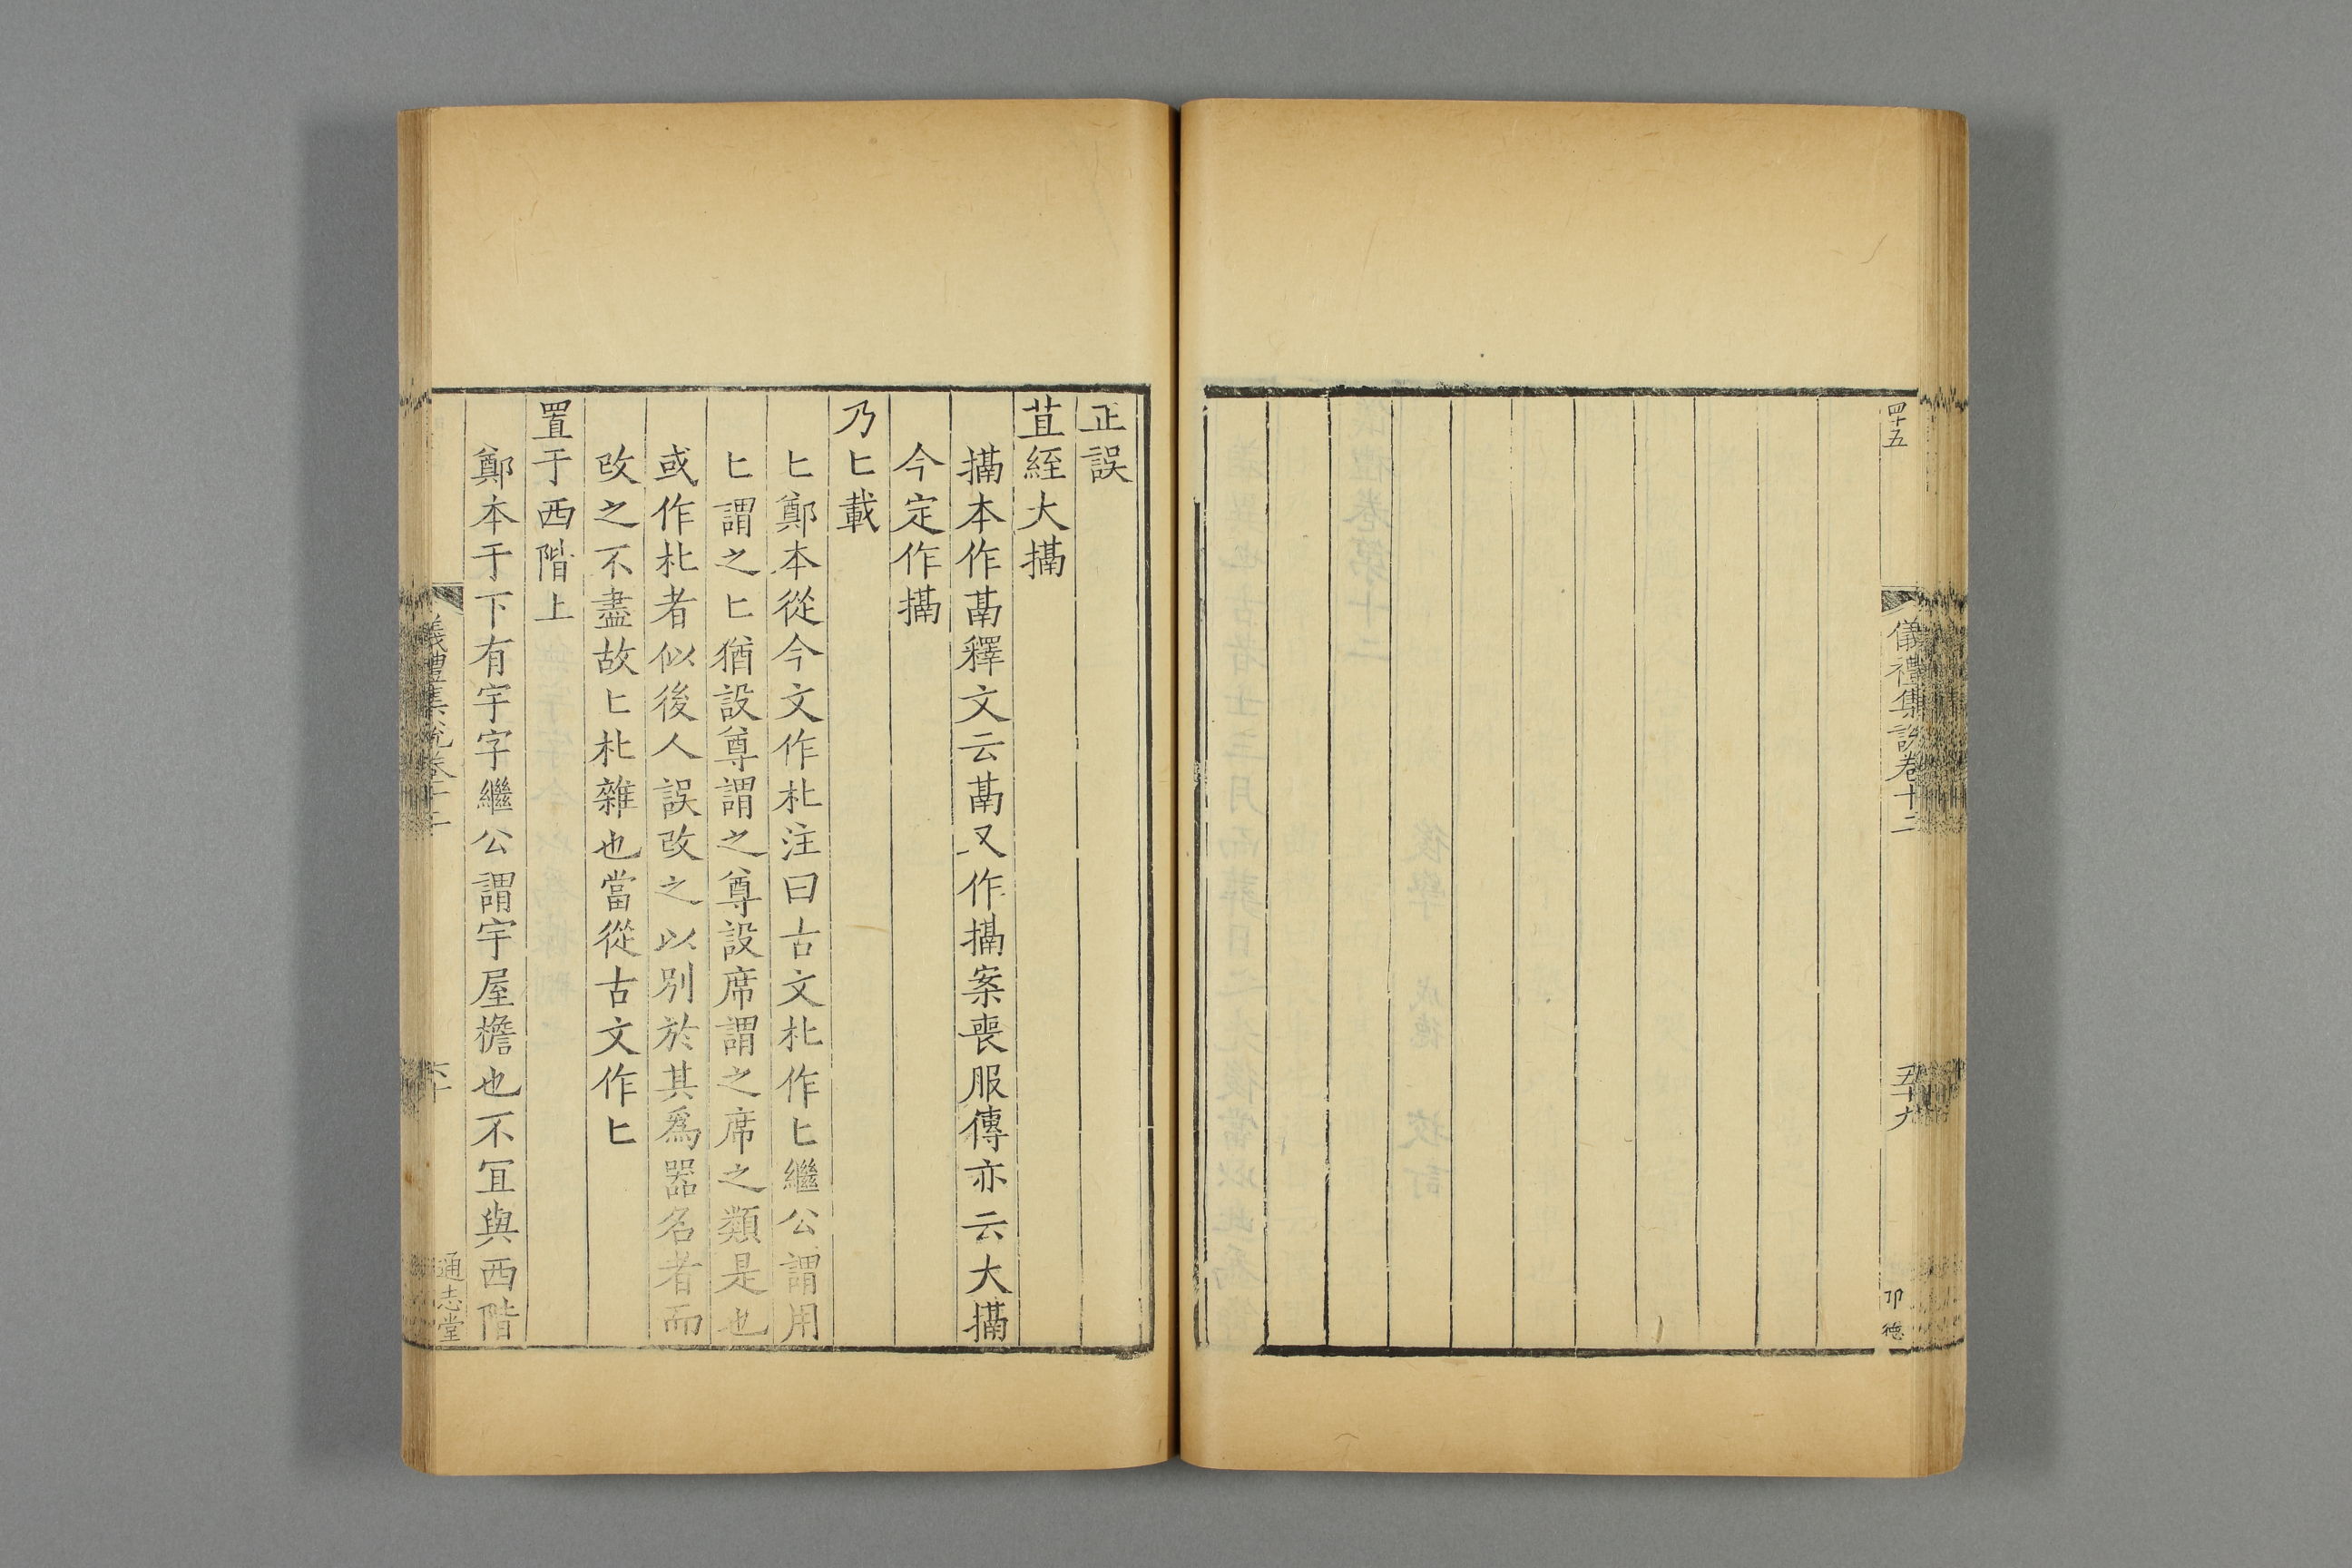 四十五
儀禮集說卷十二
五十九
卬德
正誤
苴絰大搹
搹本作䓇釋文云䓇又作搹案喪服傳亦云大搹
今定作搹
乃匕載
匕鄭本從今文作朼注曰古文朼作匕繼公謂用
匕謂之匕猶設尊謂之尊設席謂之席之類是也
或作朼者似後人誤改之以別於其爲器名者而
改之不盡故匕朼雜也當從古文作匕
置于西階上
鄭本于下有宇字繼公謂宇屋檐也不冝與西階
儀禮集說卷十二
六十
通志堂